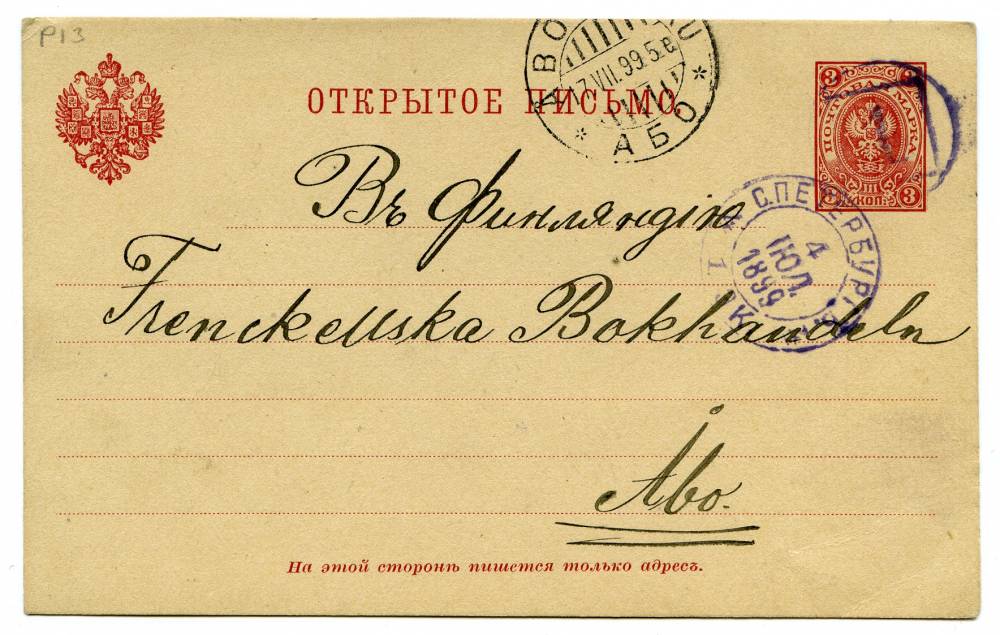 P13
ОТКРЫТОЕ ПИСЬМО.
ABO TURKU
17.VII.99.5 e.
АБО
3 3
ПОЧТОВАЯ МАРКА
3 КОП. 3
Въ Финляндію
С.ПЕТЕРБУРГ
4
ІЮЛ.
1899
1
Frenckellska Bokhandeln
Åbo.
На этой сторонѣ пишется только адресъ.